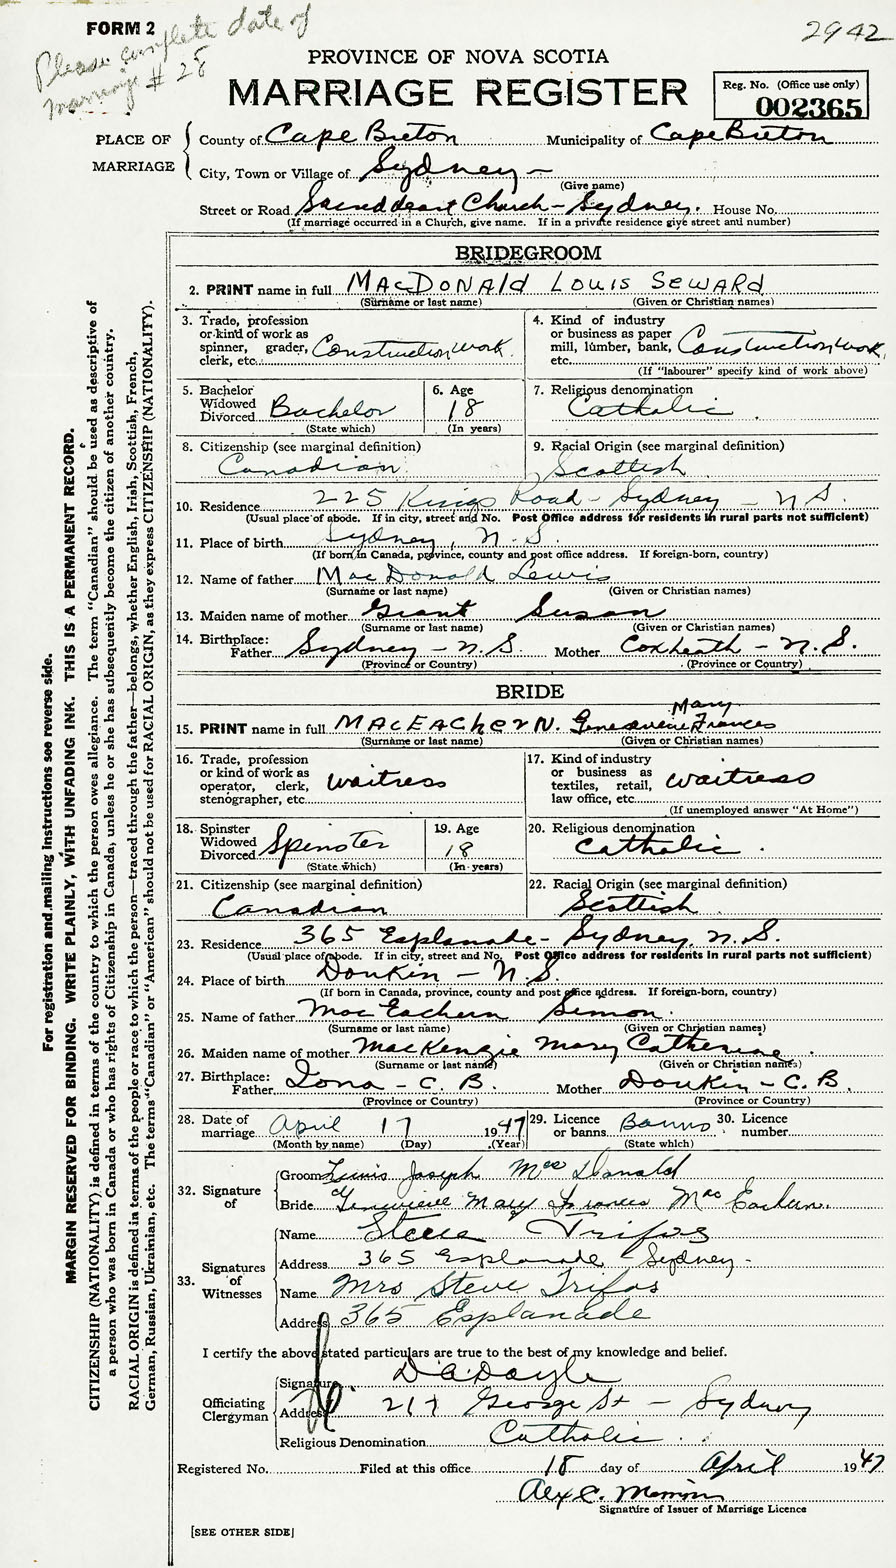 FORM 2
2942
Please complete date of
marriage # 28
PROVINCE OF NOVA SCOTIA
MARRIAGE REGISTER
Reg. No. (Office use only)
002365
PLACE OF MARRIAGE
County of Cape Breton Municipality of Cape Breton
City, Town or Village of Sydney —
(Give name)
Street or Road Sacred Heart Church – Sydney. House No.
(If marriage occurred in a Church, give name. If in a private residence give street and number)
BRIDEGROOM
2. PRINT name in full MACDONALD LOUIS SEWARD
(Surname or last name) (Given or Christian names)
3. Trade, profession or kind of work as spinner, grader, clerk, etc. Construction work.
4. Kind of industry or business as paper mill, lumber, bank, etc. Construction work,
(If "labourer" specify kind of work above)
5. Bachelor Widowed Divorced Bachelor
(State which)
6. Age 18
(In years)
7. Religious denomination
Catholic.
8. Citizenship (see marginal definition)
Canadian
9. Racial Origin (see marginal definition)
Scottish
10. Residence 225 Kings Road – Sydney – N.S.
(Usual place of abode. If in city, street and No. Post Office address for residents in rural parts not sufficient)
11. Place of birth Sydney, N.S.
(If born in Canada, province, county and post office address. If foreign-born, country)
12. Name of father MacDonald Lewis
(Surname or last name) (Given or Christian names)
13. Maiden name of mother Grant Susan
(Surname or last name) (Given or Christian names)
14. Birthplace:
Father Sydney – N.S. Mother Coxheath – N.S.
(Province or Country) (Province or Country)
BRIDE
Mary
15. PRINT name in full MACEACHERN. Genevieve Frances
(Surname or last name) (Given or Christian names)
16. Trade, profession or kind of work as operator, clerk, stenographer, etc. waitress
17. Kind of industry or business as textiles, retail, law office, etc. waitress
(If unemployed answer "At Home")
18. Spinster Widowed Divorced Spinster
(State which)
19. Age 18
(In years)
20. Religious denomination
Catholic.
21. Citizenship (see marginal definition)
Canadian
22. Racial Origin (see marginal definition)
Scottish.
23. Residence 365 Esplanade – Sydney, N.S.
(Usual place of abode. If in city, street and No. Post Office address for residents in rural parts not sufficient)
24. Place of birth Donkin – N.S.
(If born in Canada, province, county and post office address. If foreign-born, country)
25. Name of father MacEachern Simon.
(Surname or last name) (Given or Christian names)
26. Maiden name of mother MacKenzie Mary Catherine.
(Surname or last name) (Given or Christian names)
27. Birthplace:
Father Iona – C.B. Mother Donkin – C.B.
(Province or Country) (Province or Country)
28. Date of marriage April 17 1947
(Month by name) (Day) (Year)
29. Licence or banns Banns
(State which)
30. Licence number
32. Signature of
Groom Louis Joseph MacDonald
Bride Genevieve Mary Frances MacEachern.
33. Signatures of Witnesses
Name Steve Trifos
Address 365 Esplanade Sydney –
Name Mrs Steve Trifos
Address 365 Esplanade
I certify the above stated particulars are true to the best of my knowledge and belief.
Officiating Clergyman
Signature D.A. Doyle
Address 217 George St – Sydney
Religious Denomination Catholic.
Registered No. Filed at this office 18 day of April 1947
Alex C.
Signature of Issuer of Marriage Licence
[SEE OTHER SIDE]
For registration and mailing instructions see reverse side.
MARGIN RESERVED FOR BINDING. WRITE PLAINLY, WITH UNFADING INK. THIS IS A PERMANENT RECORD.
CITIZENSHIP (NATIONALITY) is defined in terms of the country to which the person owes allegiance. The term "Canadian" should be used as descriptive of
a person who was born in Canada or who has rights of Citizenship in Canada, unless he or she has subsequently become the citizen of another country.
RACIAL ORIGIN is defined in terms of the people or race to which the person—traced through the father—belongs, whether English, Irish, Scottish, French,
German, Russian, Ukrainian, etc. The terms "Canadian" or "American" should not be used for RACIAL ORIGIN, as they express CITIZENSHIP (NATIONALITY).